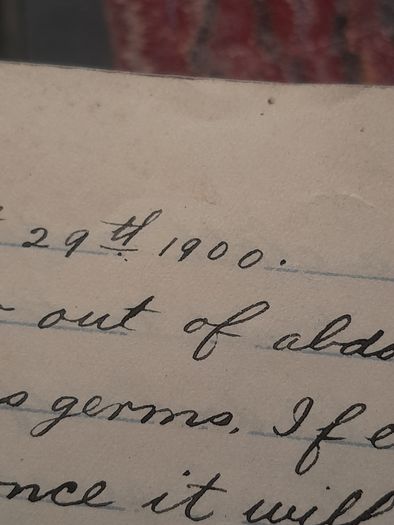 29th 1900.
out of abdo
s germs. If e
nce it will